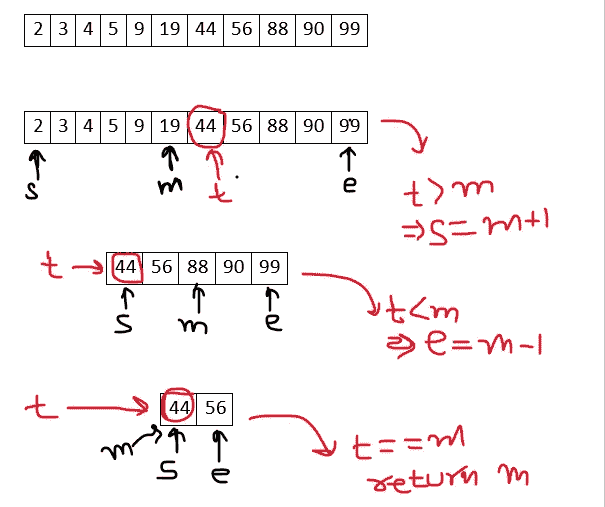 2 3 4 5 9 19 44 56 88 90 99
2 3 4 5 9 19 44 56 88 90 99
s m t e
t>m
⇒s=m+1
t 44 56 88 90 99
s m e
t<m
⇒ e=m-1
t 44 56
m s e
t==m
return m